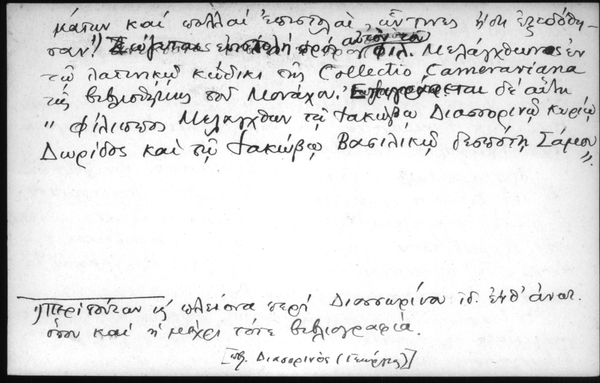 μάτων καὶ πολλαὶ ἐπιστολαὶ, ὧν τινες ἤδη ἐξεδόθη-
σαν.¹⁾ Σώζεται ἐπιστολὴ πρὸς αὐτὸν τοῦ Φιλ. Μελάγχθωνος ἐν
τῷ λατινικῷ κώδικι τῆς Collectio Camerariana
τῆς βιβλιοθήκης τοῦ Μονάχου. Ἐπιγράφεται δὲ αὕτη
"Φίλιππος Μελαγχθων τῷ Ἰακώβῳ Διασσορινῷ κυρίῳ
Δωρίδος καὶ τῷ Ἰακώβῳ Βασιλικῷ δεσπότῃ Σάμου".
1) Περὶ τούτων κ πλείονα περὶ Διασσωρίνου ἰδ. ἔνθ' ἀνωτ.
ὅπου καὶ ἡ μέχρι τότε βιβλιογραφία.
Διασορινὸς (Γεώργιος)]